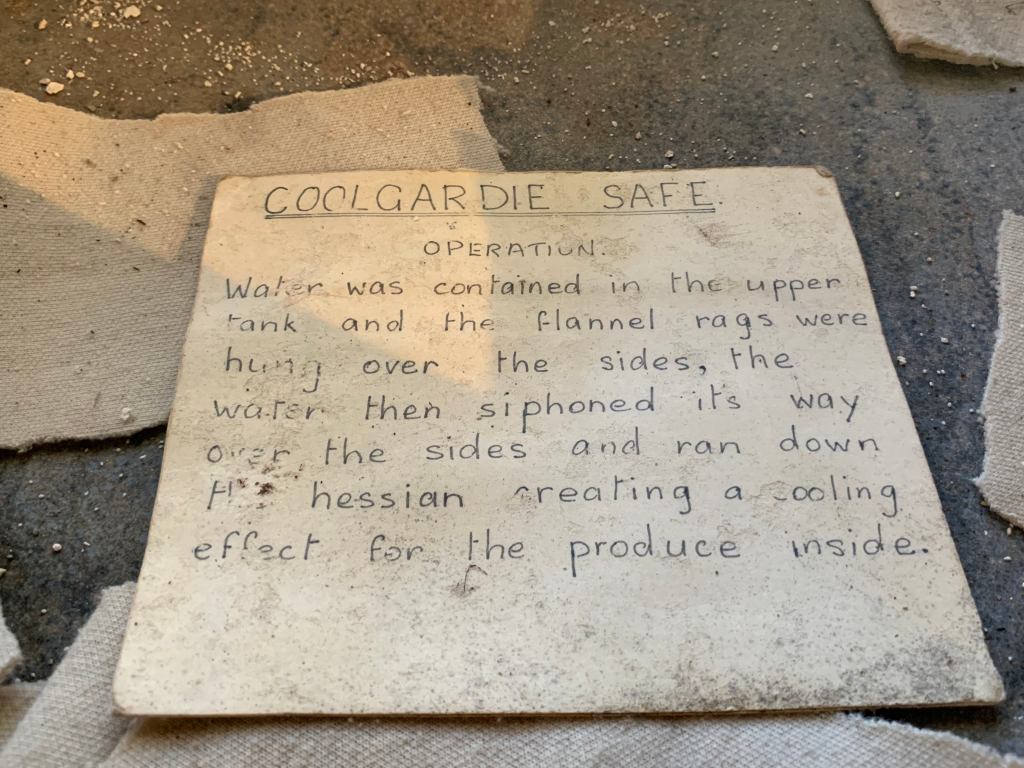 COOLGARDIE SAFE.
OPERATION.
Water was contained in the upper
tank and the flannel rags were
hung over the sides, the
water then siphoned it's way
over the sides and ran down
the hessian creating a cooling
effect for the produce inside.